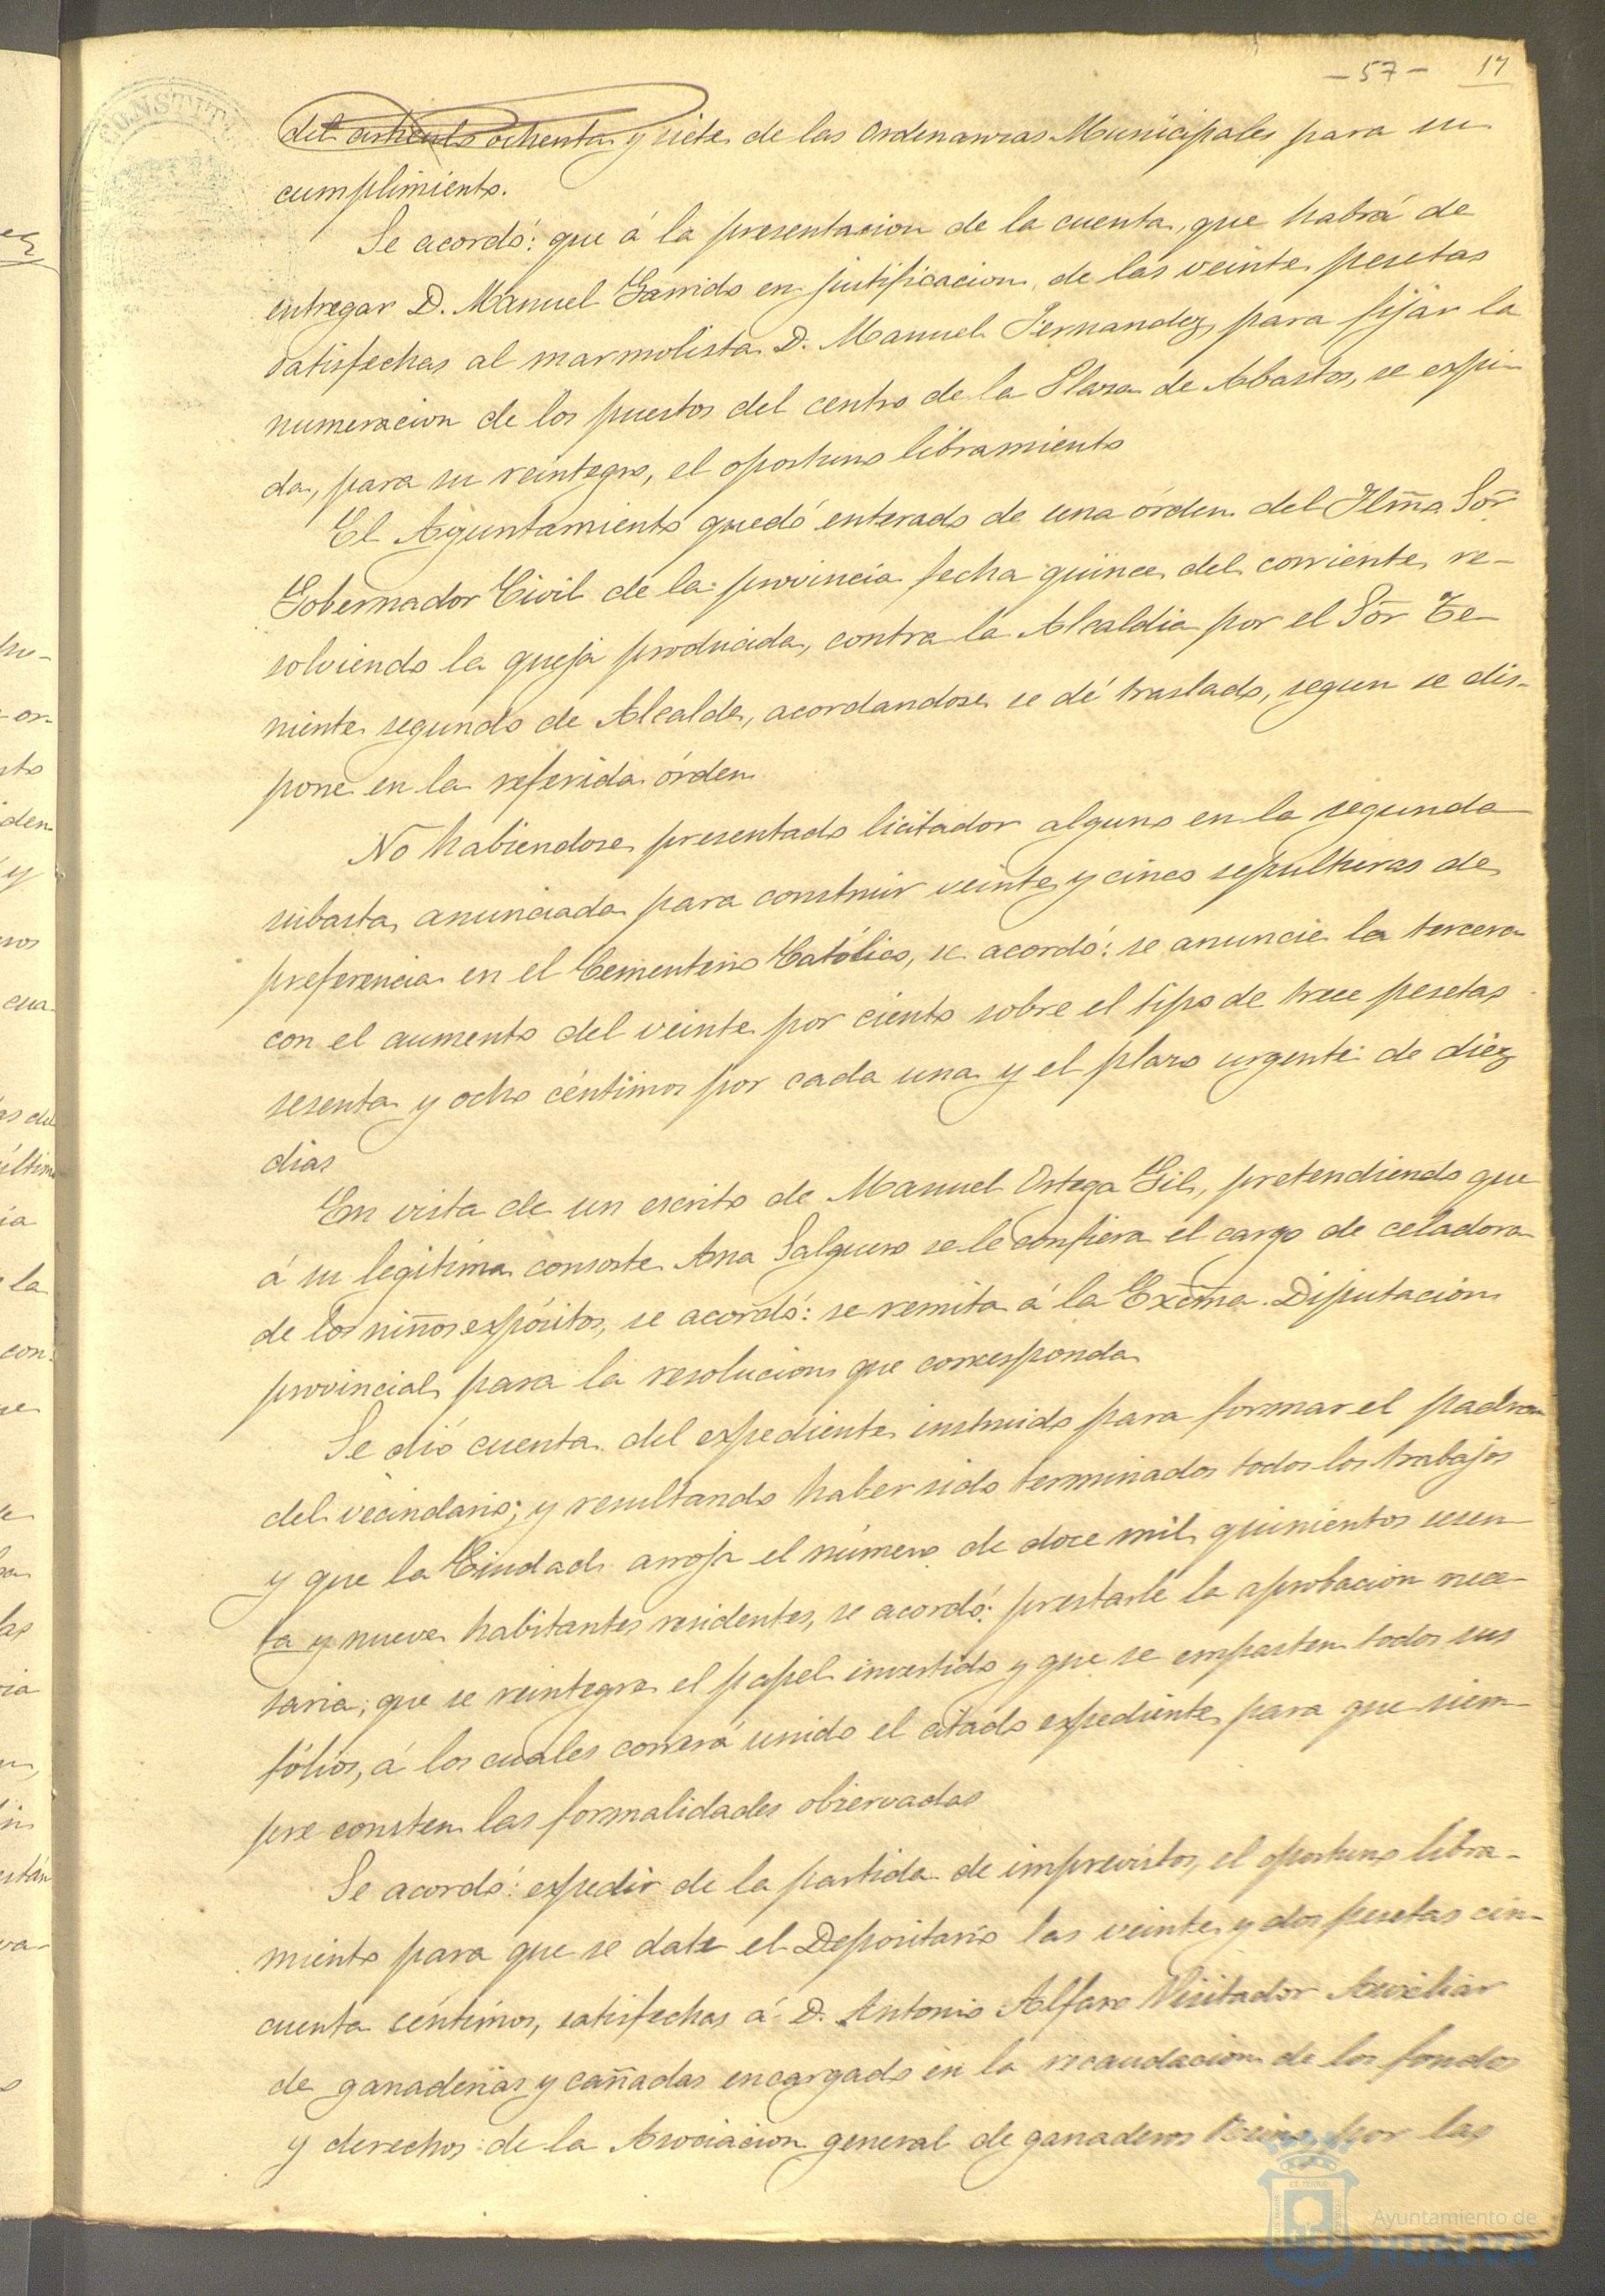 - 57 - 17
CONSTITU
del artículo ochenta y siete de las Ordenanzas Municipales para su
cumplimiento.
Se acordó: que á la presentacion de la cuenta, que habrá de
entregar D. Manuel Garrido en justificacion de las veinte pesetas
satisfechas al marmolista D. Manuel Fernandez para fijar la
numeracion de los puestos del centro de la Plaza de Abastos, se expi-
da, para su reintegro, el oportuno libramiento
El Ayuntamiento quedó enterado de una órden del Ilm̃o Sor̃
Gobernador Civil de la provincia fecha quince del corriente re-
solviendo la queja producida, contra la Alcaldia por el Sor̃ Te-
niente segundo de Alcalde, acordandose se dé traslado, segun se dis-
pone en la referida órden
No habiendose presentado licitador alguno en la segunda
subasta anunciada para construir veinte y cinco sepulturas de
preferencia en el Cementerio Católico, se acordó: se anuncie la tercera
con el aumento del veinte por ciento sobre el tipo de trece pesetas
sesenta y ocho céntimos por cada una y el plazo urgente de diez
dias
En vista de un escrito de Manuel Ortega Gil, pretendiendo que
á su legítima consorte Ana Salguero se le confiera el cargo de celadora
de los niños expósitos, se acordó: se remita á la Excm̃a Diputacion
provincial para la resolucion que corresponda
Se dió cuenta del expediente instruido para formar el padron
del vecindario; y resultando haber sido terminados todos los trabajos
y que la Ciudad arroja el número de doce mil quinientos sesen-
ta y nueve habitantes residentes, se acordó: prestarle la aprobacion nece-
saria; que se reintegre el papel invertido y que se empasten todos sus
fólios, á los cuales correrá unido el citado expediente para que siem-
pre consten las formalidades observadas
Se acordó: expedir de la partida de imprevistos, el oportuno libra-
miento para que se date el Depositario las veinte y dos pesetas cin-
cuenta céntimos, satisfechas á D. Antonio Alfaro Visitador Auxiliar
de ganaderias y cañadas encargado en la recaudacion de los fondos
y derechos de la Asociacion general de ganaderos por las
Ayuntamiento de
HUELVA